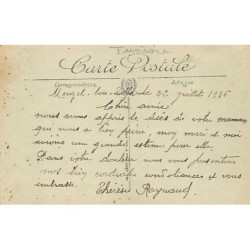 Tunisie
Carte Postale
Correspondance Adresse
Menzel-bou-zelfa le 22 juillet 1936
Chère amie
nous avons appris le décès de votre maman
qui nous a bien peiné, moy mari et moi
avions une grande estime pour elle.
Dans votre douleur nous vous présentons
nos bien cordiales condoléances et vous
embrasse. Thérèse Raynaud